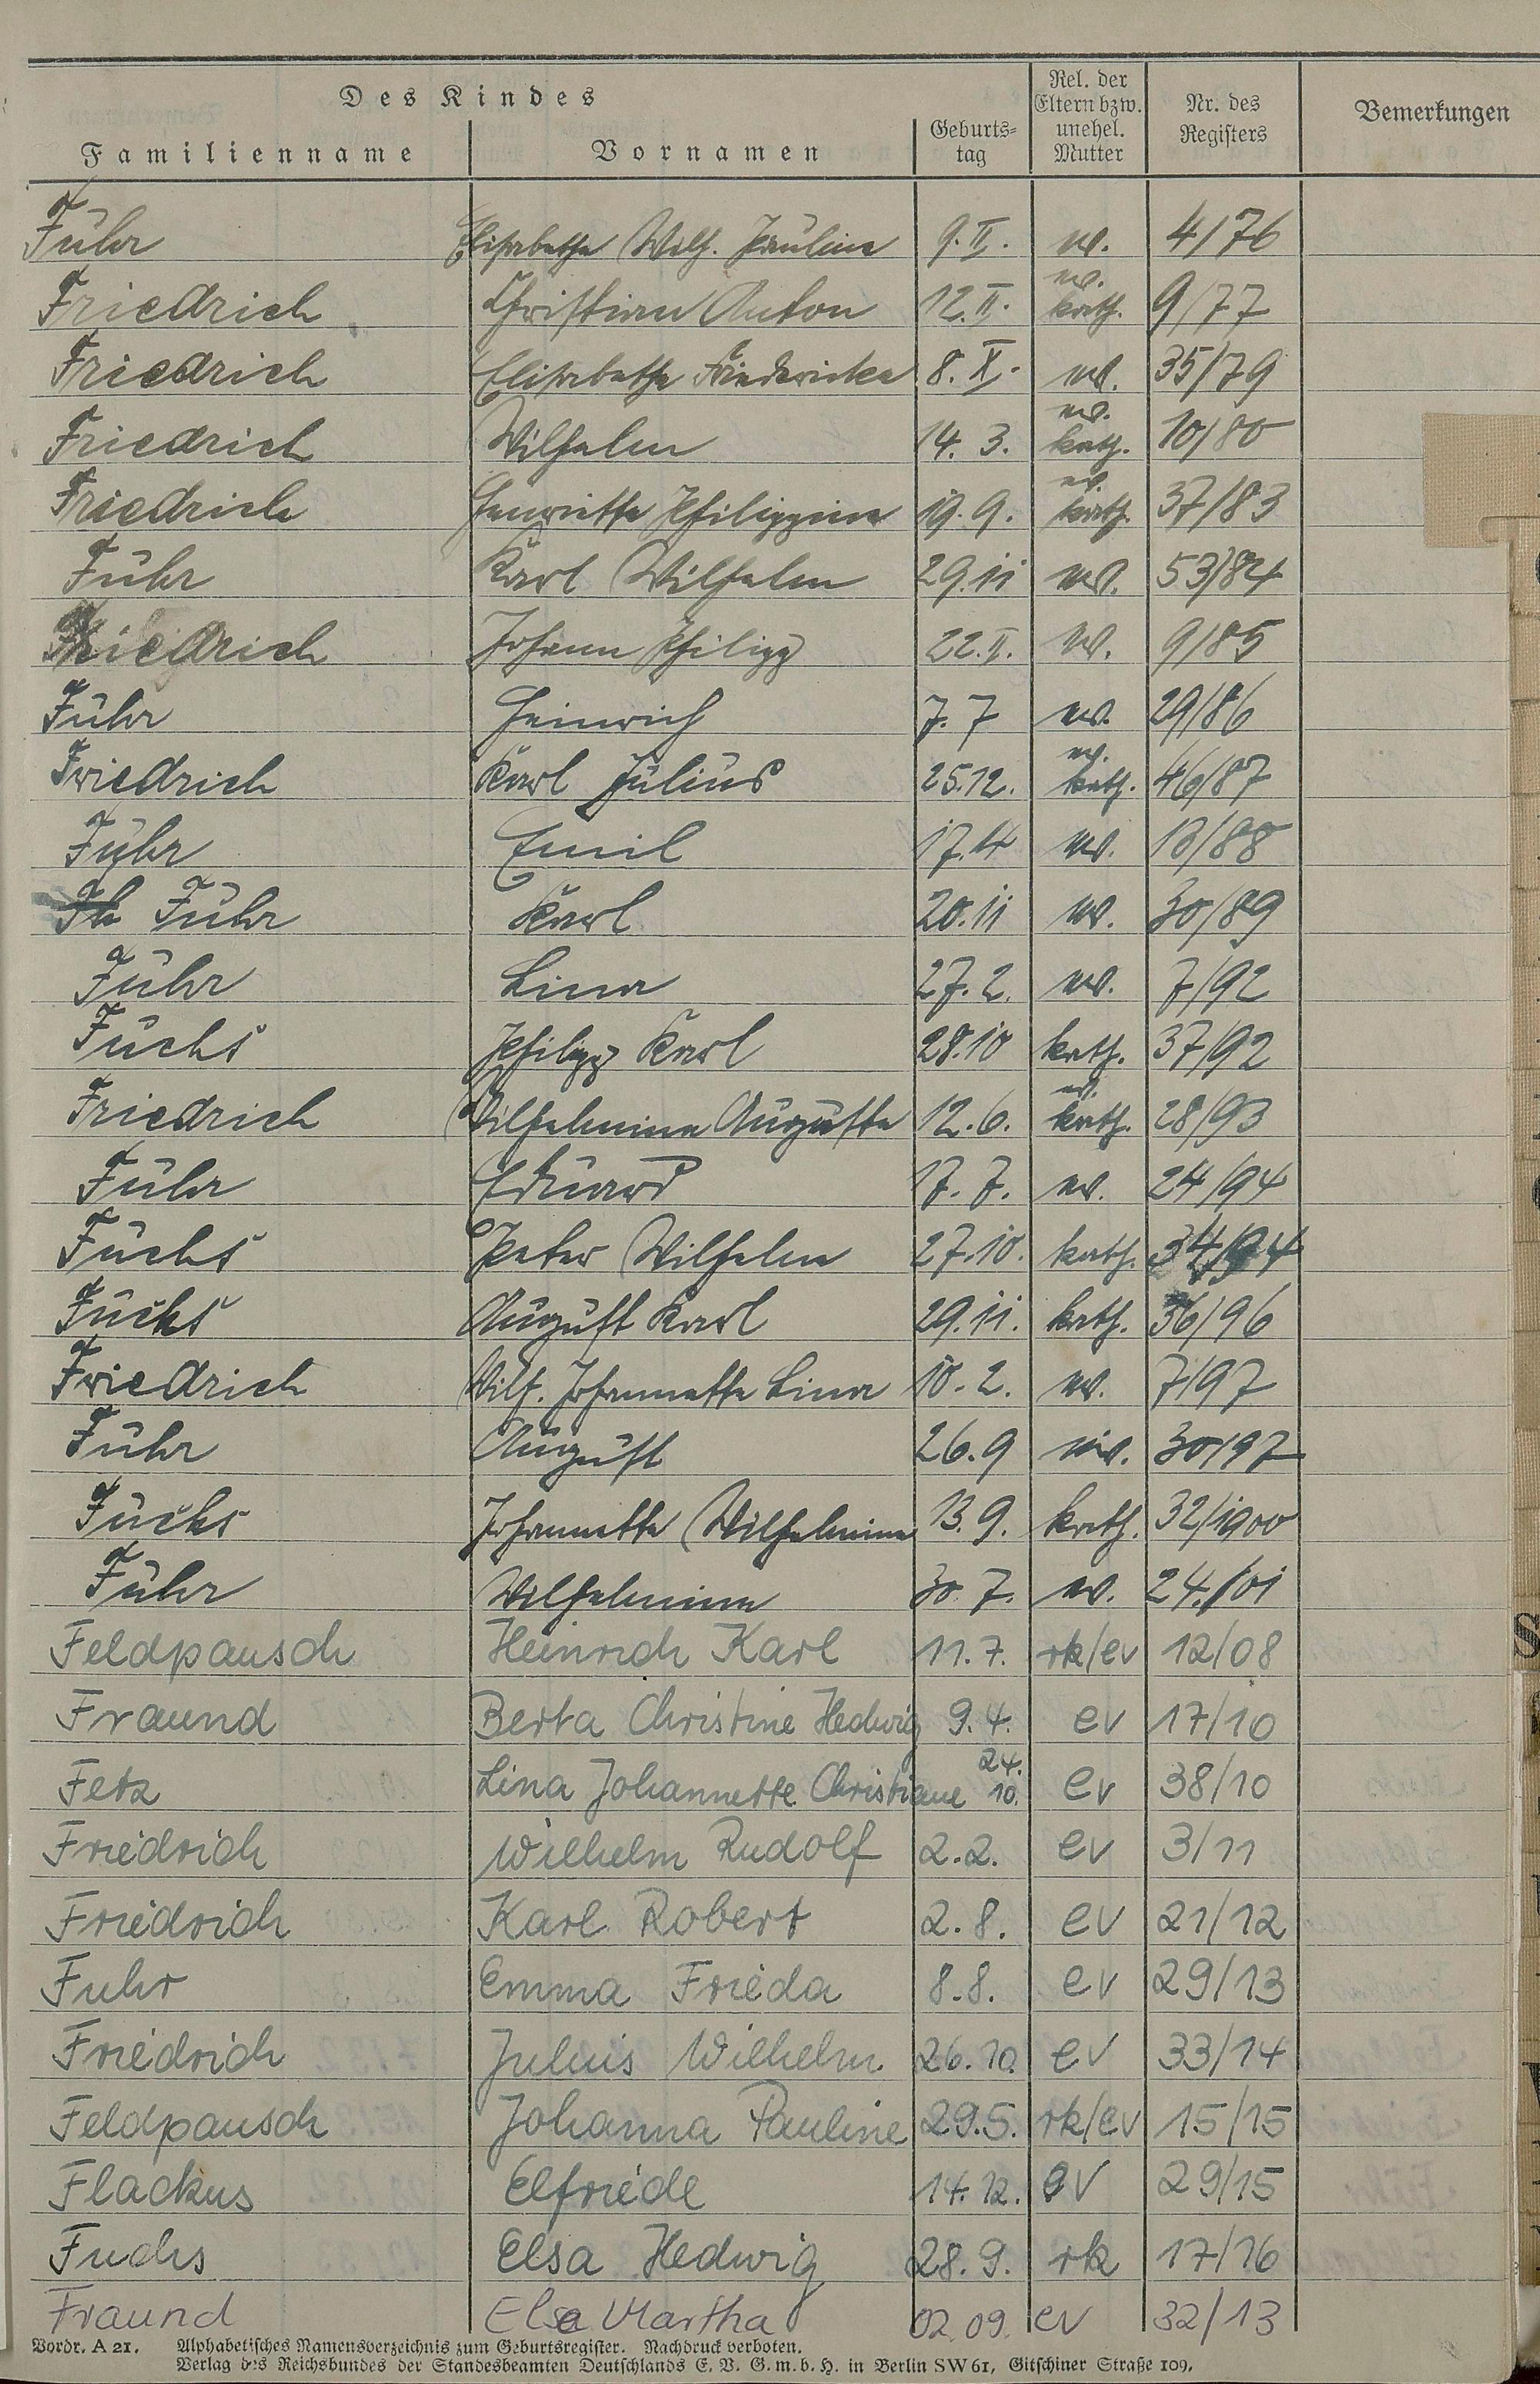 Des Kindes
Familienname Vornamen Geburts-tag Rel. der Eltern bzw. unehel. Mutter Nr. des Registers Bemerkungen
Fuhr Elisabethe Wilh. Pauline 9. II. ev. 4/76
Friedrich Christian Anton 12. II. ev. kath. 9/77
Friedrich Elisabethe Friedericke 8. X. ev. 35/79
Friedrich Wilhelm 14. 3. ev. kath. 10/80
Friedrich Henriette Philippine 19. 9. ev. kath. 37/83
Fuhr Karl Wilhelm 29. 11 ev. 53/84
Friedrich Johann Philipp 22. II. ev. 9/85
Fuhr Heinrich 7. 7 ev. 29/86
Friedrich Karl Julius 25.12. ev. kath. 46/87
Fuhr Emil 17.4 ev. 18/88
Fuhr Karl 20.11 ev. 30/89
Fuhr Lina 27. 2. ev. 7/92
Fuchs Philipp Karl 28.10 kath. 37/92
Friedrich Wilhelmine Auguste 12. 6. ev. kath. 28/93
Fuhr Eduard 17. 7. ev. 24/94
Fuchs Peter Wilhelm 27.10. kath. 34/94
Fuchs August Karl 29.11. kath. 36/96
Friedrich Wilh. Johannette Lina 10. 2. ev. 7/97
Fuhr August 26. 9 ev. 30/97
Fuchs Johannette Wilhelmine 13. 9. kath. 32/1900
Fuhr Wilhelmine 30. 7. ev. 24./01
Feldpausch Heinrich Karl 11. 7. rk/ev 12/08
Fraund Berta Christine Hedwig 9. 4. ev 17/10
Fetz Lina Johannette Christiane 24. 10. ev 38/10
Friedrich Wilhelm Rudolf 2. 2. ev 3/11
Friedrich Karl Robert 2. 8. ev 21/12
Fuhr Emma Frieda 8. 8. ev 29/13
Friedrich Julius Wilhelm 26. 10. ev 33/14
Feldpausch Johanna Pauline 29. 5. rk/ev 15/15
Flackus Elfriede 14. 12. ev 29/15
Fuchs Elsa Hedwig 28. 9. rk 17/16
Fraund Else Martha 02. 09. ev 32/13
Vordr. A 21. Alphabetisches Namensverzeichnis zum Geburtsregister. Nachdruck verboten.
Verlag des Reichsbundes der Standesbeamten Deutschlands E. V. G. m. b. H. in Berlin SW 61, Gitschiner Straße 109.